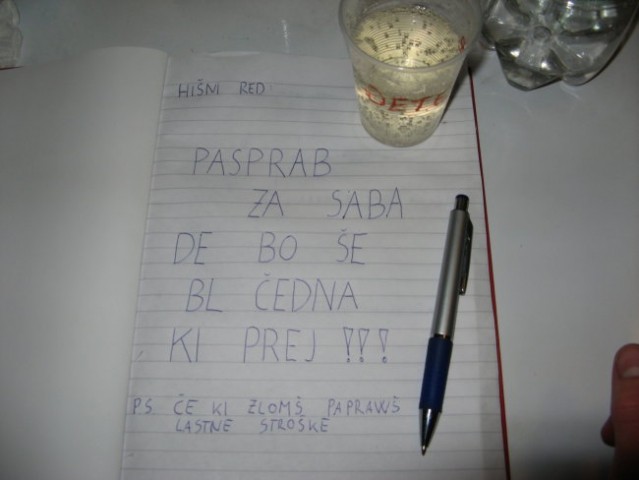 HIŠNI RED
PASPRAB
ZA SABA
DE BO ŠE
BL ČEDNA
KI PREJ !!!
P.S. ČE KI ZLOMŠ PAPRAVŠ
LASTNE STROŠKE